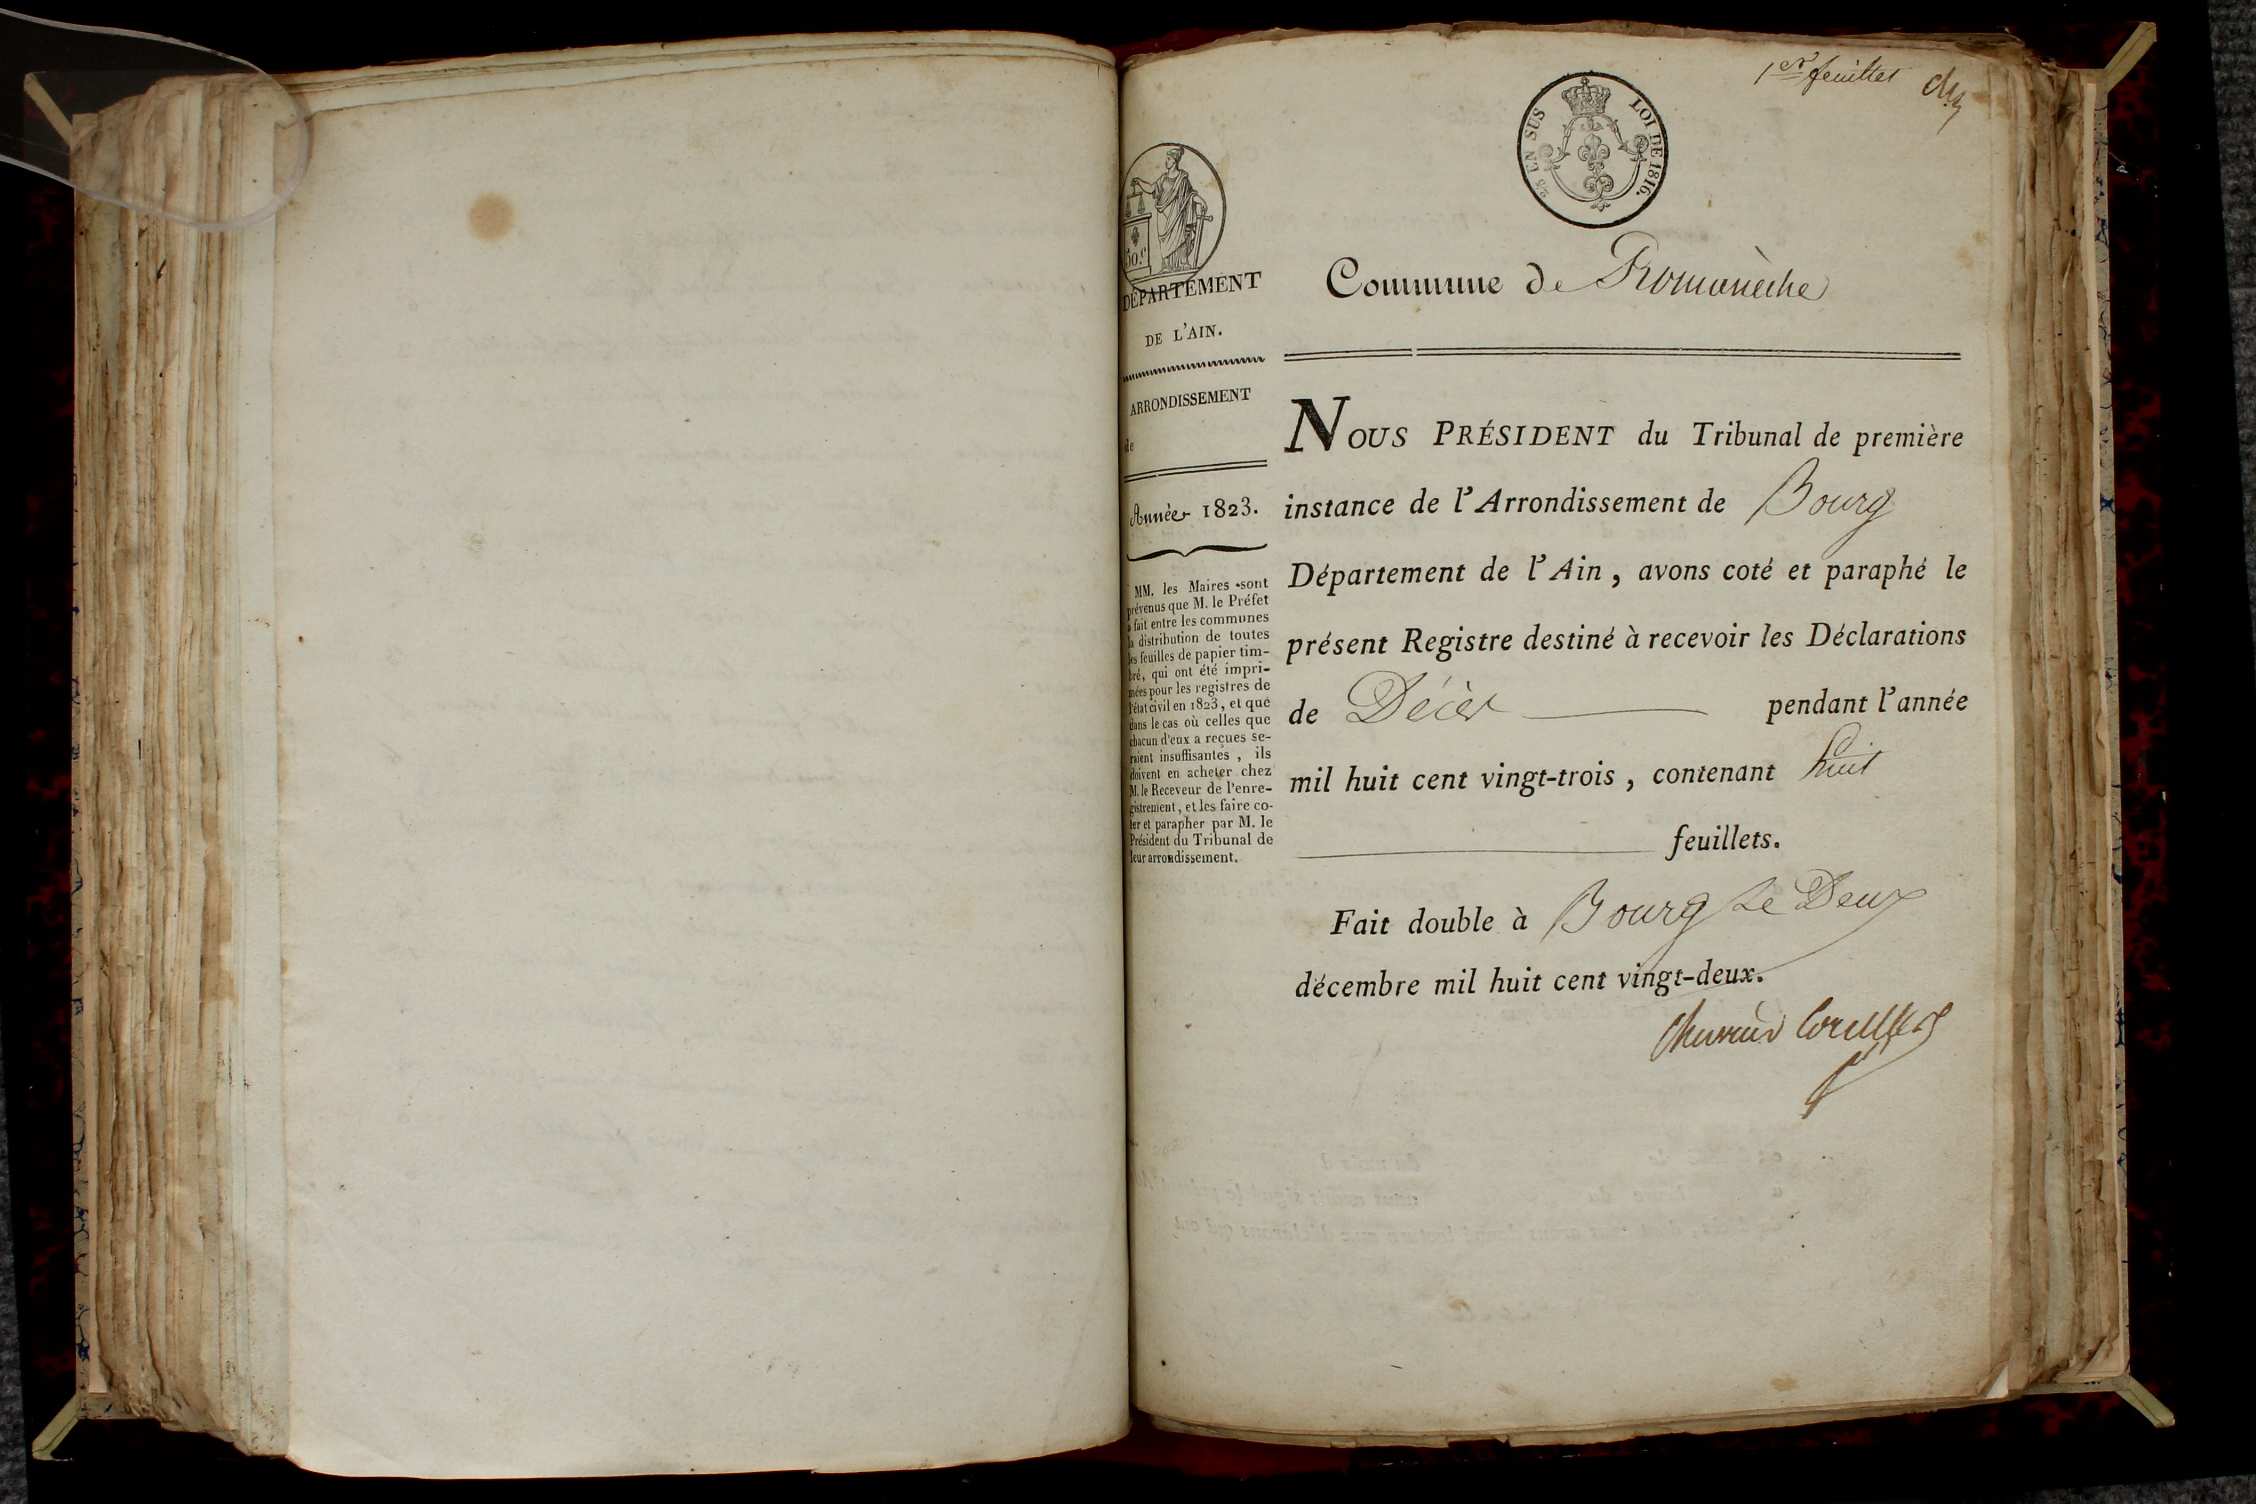 1er feuillet
25 EN SUS
LOI DE 1816.
50 c
DÉPARTEMENT
DE L'AIN.
ARRONDISSEMENT
de
Année 1823.
MM. les Maires sont
prévenus que M. le Préfet
a fait entre les communes
la distribution de toutes
les feuilles de papier tim-
bré, qui ont été impri-
mées pour les registres de
l'état civil en 1823, et que
dans le cas où celles que
chacun d'eux a reçues se-
raient insuffisantes, ils
doivent en acheter chez
M. le Receveur de l'enre-
gistrement, et les faire co-
ter et parapher par M. le
Président du Tribunal de
leur arrondissement.
Commune de Romanèche
NOUS PRÉSIDENT du Tribunal de première
instance de l'Arrondissement de Bourg
Département de l'Ain, avons coté et paraphé le
présent Registre destiné à recevoir les Déclarations
de Décès pendant l'année
mil huit cent vingt-trois, contenant huit
feuillets.
Fait double à Bourg le Deux
décembre mil huit cent vingt-deux.